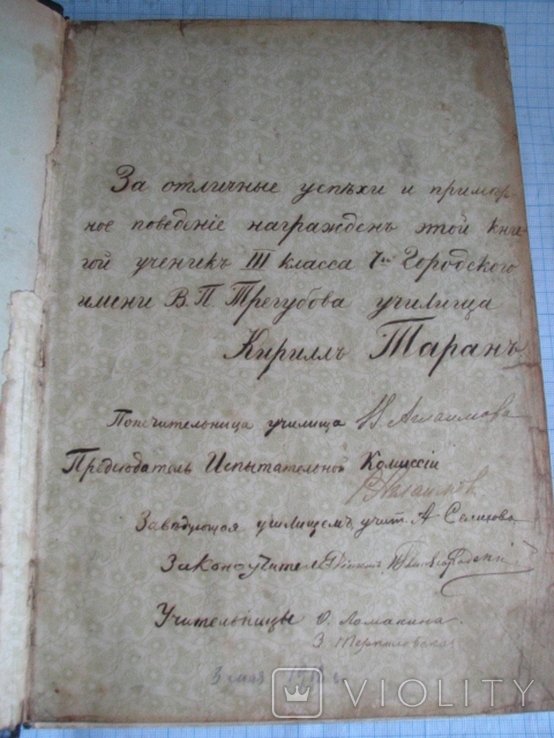 За отличные успѣхи и примѣр-
ное поведеніе награжденъ этой кни-
гой ученикъ III класса 7го Городского
имени В. П. Трегубова училища
Кириллъ Таранъ
Попечительница училища
Предсѣдатель Испытательной Комиссіи
Завѣдующая училищемъ, учит. А. Селихова
Законоучител
Учительницы О. Ломакина
З.
3 мая
VIOLITY